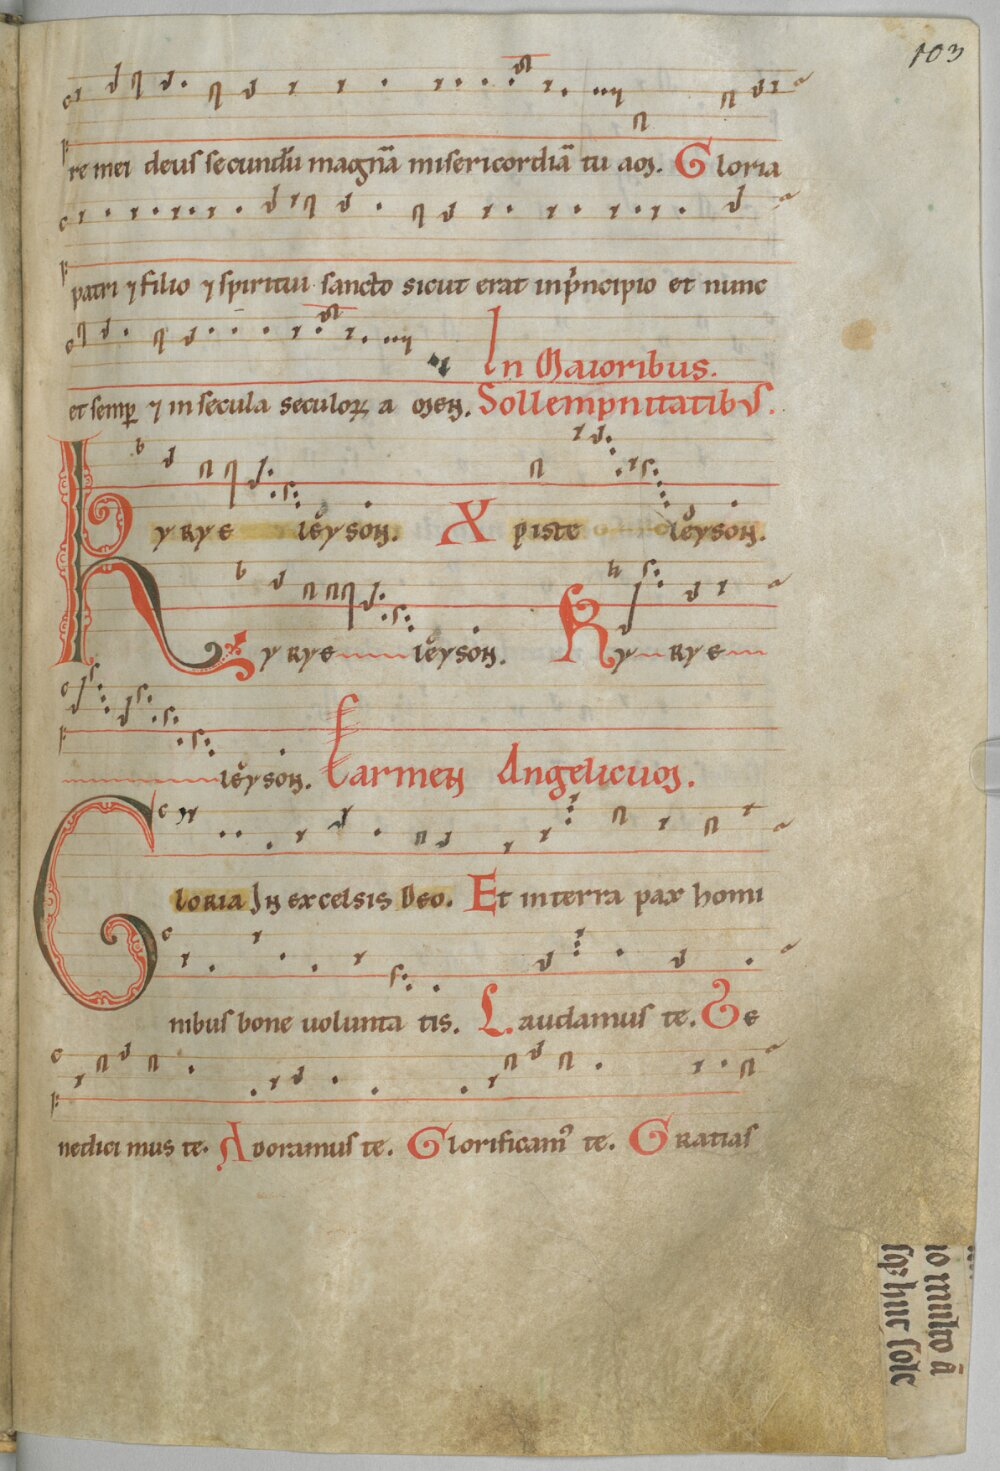 103
re mei deus secundū magnā misericordiā tu am. Gloria
patri ⁊ filio ⁊ spiritui sancto sicut erat inpͥncipio et nunc
In Maioribus.
et semꝑ ⁊ in secula seculoꝝ a men. Sollempnitatibus.
Kyrye leyson. Xpiste leyson.
Kyrye leyson. Kyrye
leyson. Carmen Angelicum.
Gloria In excelsis Deo. Et in terra pax homi
nibus bone uolunta tis. Laudamus te. Be
nedici mus te. Adoramus te. Glorificamꝰ te. Gratias
io multo ā
huc